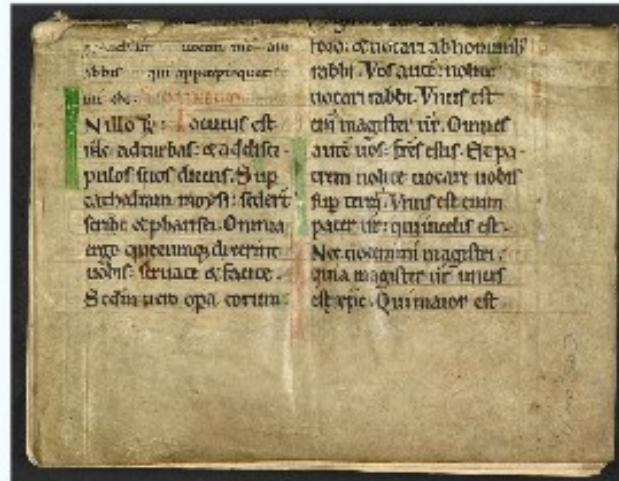 abbis
N illo tp̄r. Locutus est
ihc ad turbas: & ad disci
pulos suos dicens. Sup
cathedram moysi: sedert̄
scribe & pharisei. Omnia
ergo quecumq; dixerint
uobis: seruate & facite.
Scdm uero opa eorum
foro: & uocari ab hominib;
rabbi. Vos autē: nolite
uocari rabbi. Vnus est
eni magister ur̄. Omnes
autē uos: frēs estis. Et pa
trem nolite uocare uobis
sup terrā. Vnus est enim
pater ur̄: qui in celis est.
Nec uocemini magistri.
quia magister ur̄ unus
est xp̄c. Qui maior est